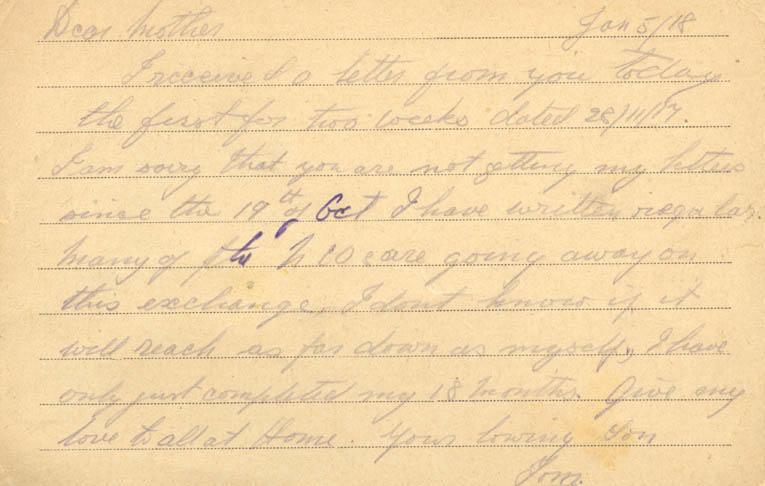 Dear Mother Jan 5/18
I received a letter from you today
the first for two weeks dated 28/11/17.
I am sorry that you are not getting my letters
since the 19th of Oct I have written regular.
many of the N C Os are going away on
this exchange, I dont know if it
will reach as far down as myself, I have
only just completed my 18 months. Give my
love to all at Home. Your loving Son
Tom.